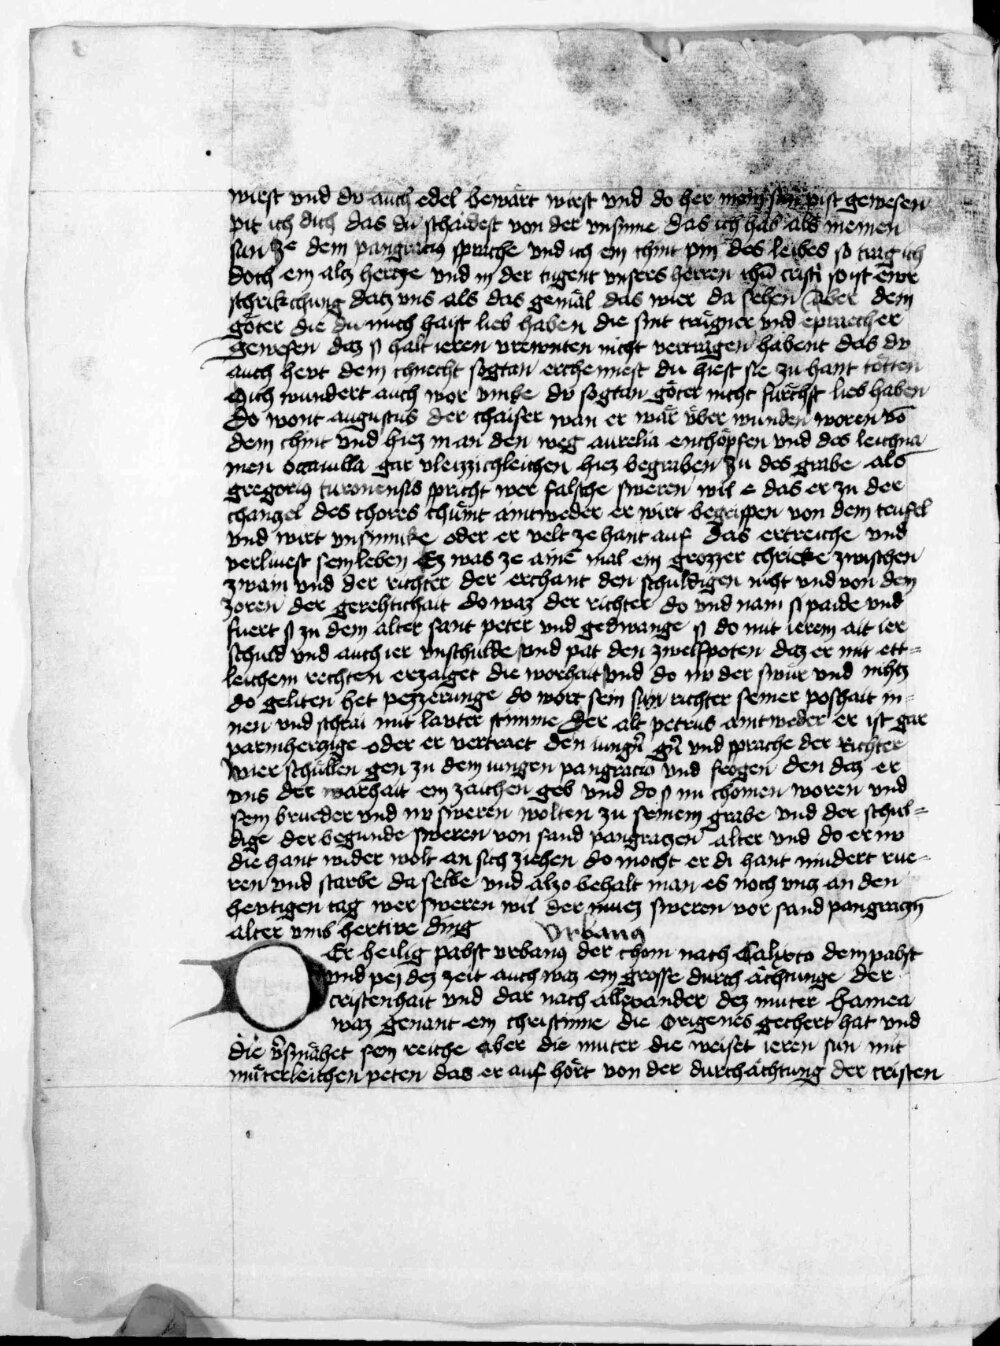 wiest vnd du auch edel bewärt wiest vnd do her pist gewesen
pit ich dich das du schaidest von der vnsinne das ich hab als meinen
sun Ze dem pangracius sprache vnd ich ein chint pin des leibes so trag ich
doch ein alcz hercze vnd in der tugent vnsers herren ihū cristi so ist ewr
schrikchung datz vns als das gemäl das wier da sehen Aber dem
göter die du mich haist lieb haben die sint träugner vnd eprecher
gewesen daz si halt ieren vrewnten nicht vertragen habent das du
auch hevt dem chnecht sogtan erchennest du hiest sie zu hant tötten
Mich wundert auch wor vmbe du sogtan göter nicht fürchst lieb haben
Do wont augustus der chaiser wan er wär vber wunden woren vō
dem chint vnd hiez in an den weg aurelia enthöpfen vnd des leichna
men octauilla gar vleizzichleichen hiez begraben zu des grabe als
gregorius turonensis spricht wer falsche sweren wil e das er zu der
chanczel des chores chümt aintweder er wirt begriffen von dem teufel
vnd wirt vnsinnike oder er velt ze hant auf das ertreiche vnd
verliuest sein leben Ez was ze ainē mal ein grozzer chrieke zwischen
zwain vnd der richter der erchant den schuldigen nicht vnd von dem
zoren der gerehtichait do waz der richter do vnd nam si paide vnd
fuert si zu dem alter sant peter vnd gedwange si do mit ierem ait ier
schuld vnd auch ier vnschulde vnd pat den zwelfpoten daz er mit ett=
leichem rechten erzaiget die worhait vnd do nv der swür vnd nihtz
do geliten het pezzerunge do wort sein sun richter seiner poshait in=
nen vnd schrai mit lavter stimme Der alt petrus aintweder er ist gar
parmherczige oder er vertraet den vnd sprache der Richter
wier schüllen gen zu dem iungen pangracio vnd frogen den daz er
vns der warhait ein zaichen geb vnd do si nu chomen woren vnd
sein brueder vnd nv sweren wolten zu seinem grabe vnd der schul=
dige der begunde sweren von sand pangraczen alter vnd do er nv
die hant wider wolt an sich ziehen do mocht er di hant nindert rue=
ren vnd starbe da selbe vnd alzo behalt man es noch vncz an den
hevtigen tag wer sweren wil der muez sweren vor sand pangraczn̄
alter vmb hertive ding
Vrbanus
DEr heilig pabst vrbanus der chom nach Calixto dem pabst
vnd pei dez zeit auch waz ein grosse durch ächtunge der
cristenhait vnd dar nach allexander dez muter hamea
waz genant ein christinne die Origenes gechert hat vnd
die v̄smähet sein reiche Aber die muter die weiset ieren sun mit
müterleichen peten das er auf hört von der durchächtung der cristen